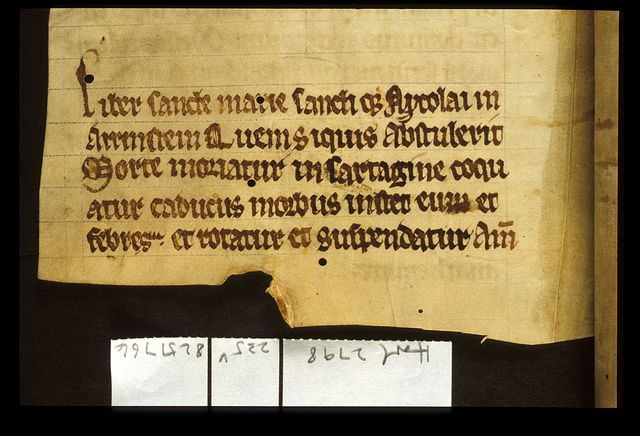 Liber sancte marie sancti qȝ Nycolai in
Arrinstein Quem siquis Abstulerit
Morte moriatur in sartagine coqu
atur caducus morbus instet eum et
febres· et rotatur et suspendatur Am̅
Harl 2798
225v
8251766